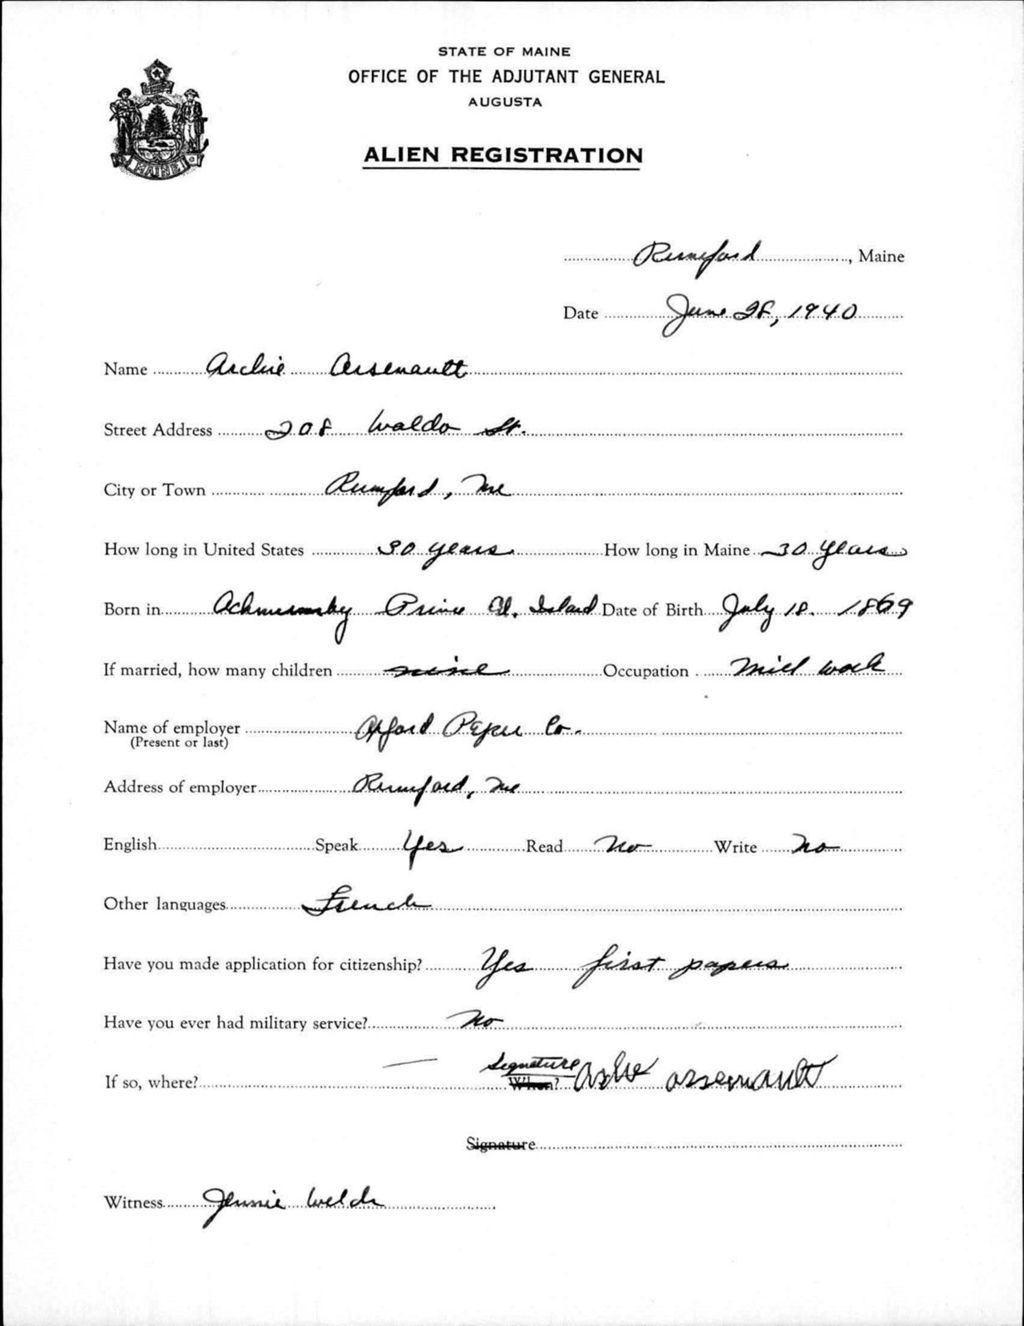 STATE OF MAINE
OFFICE OF THE ADJUTANT GENERAL
AUGUSTA
ALIEN REGISTRATION
MAINE
Rumford, Maine
Date June 28, 1940
Name Archie Arsenault
Street Address 208 Waldo St.
City or Town Rumford, Me
How long in United States 30 years How long in Maine 30 years
Born in Prince Ed. Island Date of Birth July 18. 1869
If married, how many children Occupation Mill work
Name of employer Oxford Paper Co.
(Present or last)
Address of employer Rumford, Me
English Speak Yes Read No Write No
Other languages French
Have you made application for citizenship? Yes first papers
Have you ever had military service? No
If so, where? — Signature When? arsenault
Signature
Witness Jennie Welch